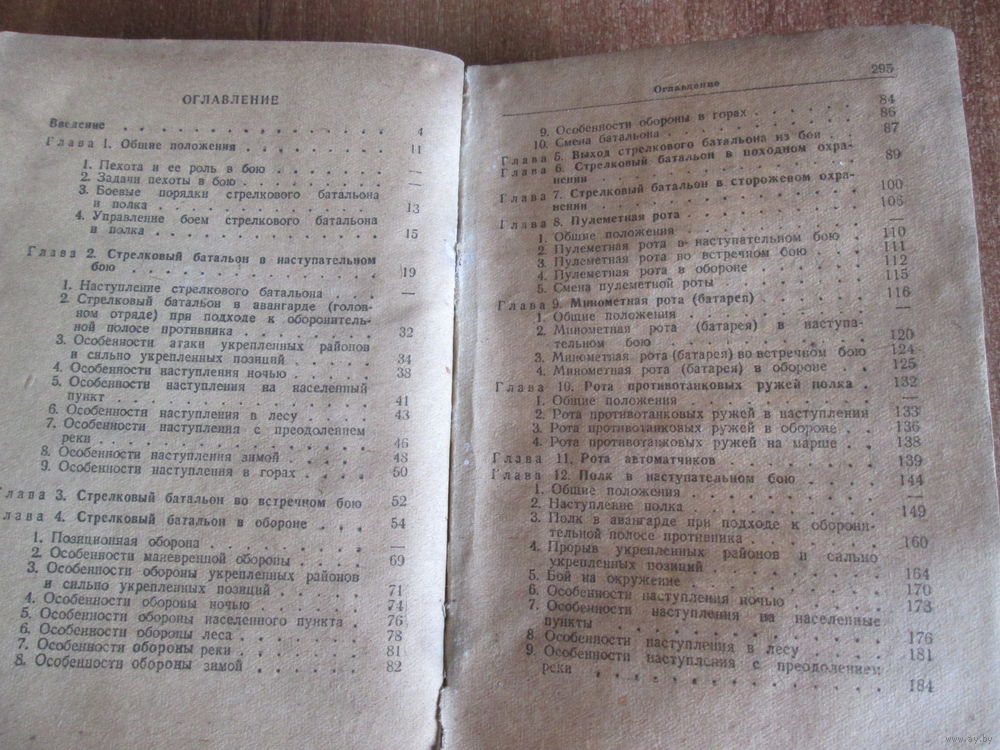 ОГЛАВЛЕНИЕ
Введение . . . . . . . . . . . . . . 4
Глава 1. Общие положения . . . . . . . . 11
1. Пехота и ее роль в бою . . . . . . . —
2. Задачи пехоты в бою . . . . . . . . —
3. Боевые порядки стрелкового батальона
и полка . . . . . . . . . . . . 13
4. Управление боем стрелкового батальона
и полка . . . . . . . . . . . . 15
Глава 2. Стрелковый батальон в наступательном
бою . . . . . . . . . . . . . 19
1. Наступление стрелкового батальона . . . —
2. Стрелковый батальон в авангарде (голов-
ном отряде) при подходе к оборонитель-
ной полосе противника . . . . . . . 32
3. Особенности атаки укрепленных районов
и сильно укрепленных позиций . . . . 34
4. Особенности наступления ночью . . . . 38
5. Особенности наступления на населенный
пункт . . . . . . . . . . . . 41
6. Особенности наступления в лесу . . . . 43
7. Особенности наступления с преодолением
реки . . . . . . . . . . . . . 46
8. Особенности наступления зимой . . . . 48
9. Особенности наступления в горах . . . . 50
Глава 3. Стрелковый батальон во встречном бою 52
лава 4. Стрелковый батальон в обороне . . . 54
1. Позиционная оборона . . . . . . . . —
2. Особенности маневренной обороны . . . . 69
3. Особенности обороны укрепленных районов
и сильно укрепленных позиций . . . . 71
4. Особенности обороны ночью . . . . . . 74
5. Особенности обороны населенного пункта . 76
6. Особенности обороны леса . . . . . . 78
7. Особенности обороны реки . . . . . . 81
8. Особенности обороны зимой . . . . . . 82
Оглавление 295
9. Особенности обороны в горах . . . . . 84
10. Смена батальона . . . . . . . . . 86
Глава 5. Выход стрелкового батальона из боя . . 87
Глава 6. Стрелковый батальон в походном охра-
нении . . . . . . . . . . . . 89
Глава 7. Стрелковый батальон в сторожевом охра-
нении . . . . . . . . . . . . 100
Глава 8. Пулеметная рота . . . . . . . .
1. Общие положения . . . . . . . . . —
2. Пулеметная рота в наступательном бою . 110
3. Пулеметная рота во встречном бою . . . 111
4. Пулеметная рота в обороне . . . . . . 112
5. Смена пулеметной роты . . . . . . . 115
Глава 9. Минометная рота (батарея) . . . . . 116
1. Общие положения . . . . . . . . . —
2. Минометная рота (батарея) в наступа-
тельном бою . . . . . . . . . . 120
3. Минометная рота (батарея) во встречном бою 124
4. Минометная рота (батарея) в обороне . . 125
Глава 10. Рота противотанковых ружей полка . 132
1. Общие положения . . . . . . . . . —
2. Рота противотанковых ружей в наступлении 133
3. Рота противотанковых ружей в обороне . . 136
4. Рота противотанковых ружей на марше . . 138
Глава 11. Рота автоматчиков . . . . . . . 139
Глава 12. Полк в наступательном бою . . . . 144
1. Общие положения . . . . . . . . . —
2. Наступление полка . . . . . . . . . 149
3. Полк в авангарде при подходе к оборони-
тельной полосе противника . . . . . . 160
4. Прорыв укрепленных районов и сильно
укрепленных позиций . . . . . . . . 164
5. Бой на окружение . . . . . . . . . 170
6. Особенности наступления ночью . . . . 173
7. Особенности наступления на населенные
пункты . . . . . . . . . . . . 176
8. Особенности наступления в лесу . . . . 181
9. Особенности наступления с преодолением
реки . . . . . . . . . . . . . 184
www.ay.by